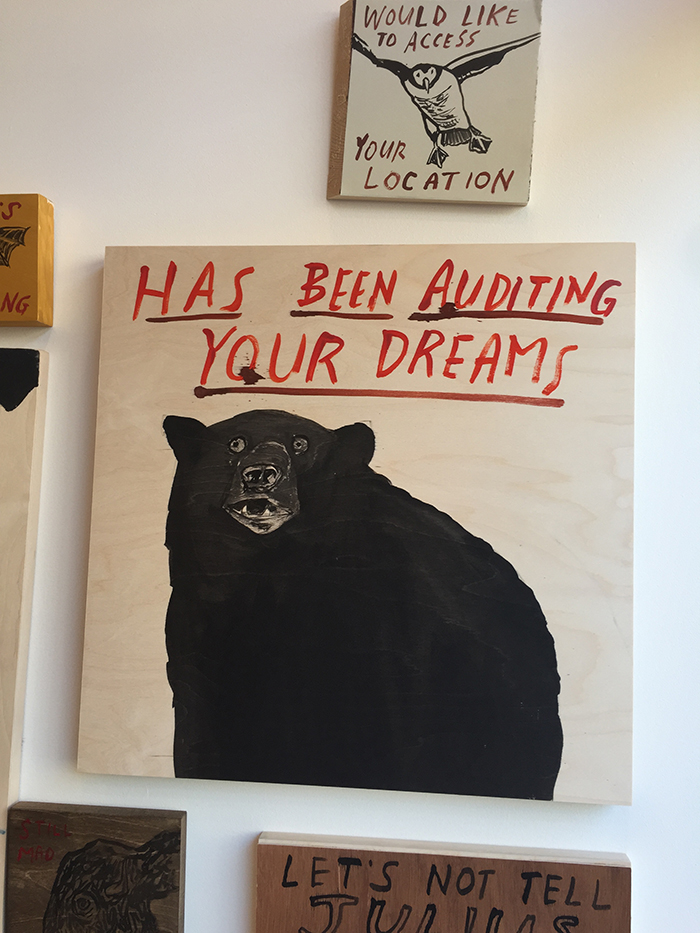 WOULD LIKE
TO ACCESS
YOUR
LOCATION
HAS BEEN AUDITING
YOUR DREAMS
STILL
MAD
LET'S NOT TELL
JULIUS